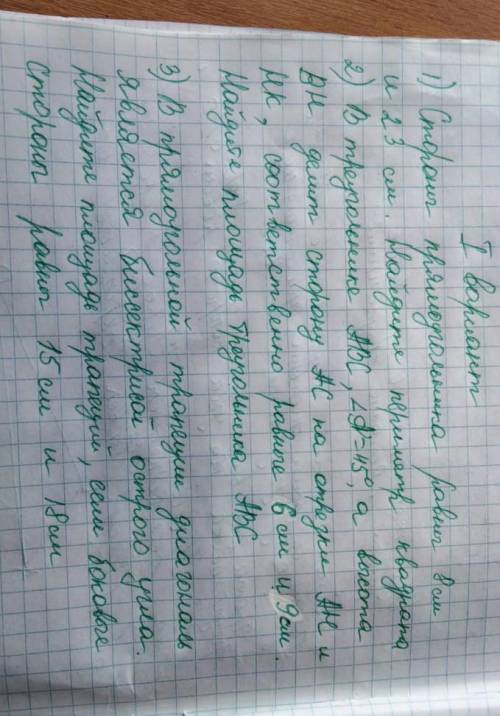 I вариант
1) Стороны прямоугольника равны 8 см
и 23 см. Найдите периметр квадрата
2) В треугольнике ABC, ∠A=45°, а высота
BH делит сторону AC на отрезки AH и
HK, соответственно равные 6 см и 9 см.
Найдите площадь треугольника ABC
3) В прямоугольной трапеции диагональ
является биссектрисой острого угла.
Найдите площадь трапеции, если боковые
стороны равны 15 см и 18 см